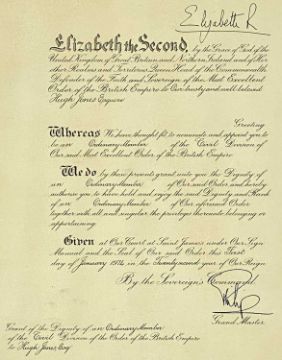 Elizabeth R
Elizabeth the Second, by the Grace of God of the
United Kingdom of Great Britain and Northern Ireland and of Her
other Realms and Territories Queen, Head of the Commonwealth,
Defender of the Faith and Sovereign of the Most Excellent
Order of the British Empire to Our trusty and well beloved
Hugh Jones Esquire
Greeting
Whereas We have thought fit to nominate and appoint you to
be an Ordinary Member of the Civil Division of
Our said Most Excellent Order of the British Empire
We do by these presents grant unto you the Dignity of
an Ordinary Member of Our said Order and hereby
authorise you to have hold and enjoy the said Dignity and Rank
of an Ordinary Member of Our aforesaid Order
together with all and singular the privileges thereunto belonging or
appertaining.
Given at Our Court at Saint James's under Our Sign
Manual and the Seal of Our said Order this First
day of January 1974 in the Twenty-second year of Our Reign
By the Sovereign's Command.
Grand Master.
Grant of the Dignity of an Ordinary Member
of the Civil Division of the Order of the British Empire
to Hugh Jones, Esq.